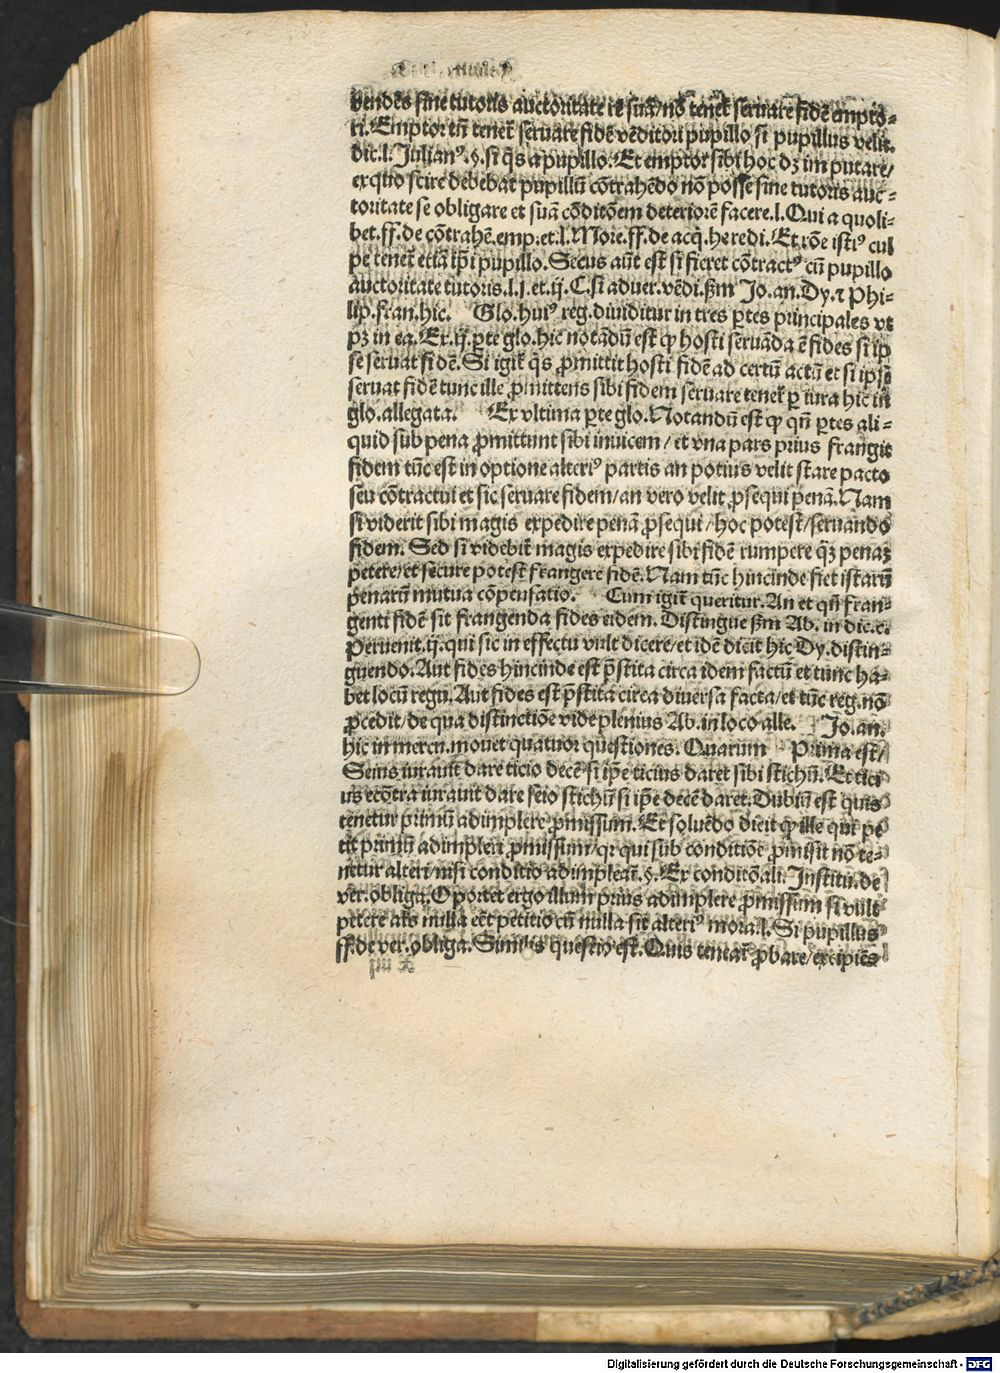 vendēs sine tutoris auctoritate rē suā/nō tenet̄ seruare fidē empto⸗
ri. Emptor tn̄ tenet̄ seruare fidē vēditori pupillo si pupillus velit.
dic.l. Julianꝰ.§.si q̄s a pupillo. Et emptor sibi hoc dꝫ imputare/
ex quo scire debebat pupillū cōtrahēdo nō posse sine tutoris auc⸗
toritate se obligare et suā cōditōem deteriorē facere.l. Qui a quoli⸗
bet.ff.de cōtrahē.emp.et.l. More.ff.de acq̄.heredi. Et rōe istiꝰ cul
pe tenet̄ etiā ip̄i pupillo. Secus aūt est si fieret cōtractꝰ cū pupillo
auctoritate tutoris.l.j.et.ij.C.si aduer.vēdi.ẜm Jo.an. Dy.⁊ Phi⸗
lip.fran.hic. Glo.huiꝰ reg.diuiditur in tres ꝑtes principales vt
pꝫ in ea. Ex.ij.ꝑte glo.hic notādū est ꝙ hosti seruāda ē fides si ip
se seruat fidē. Si igit̄ q̄s ꝓmittit hosti fidē ad certū actū et si ipse
seruat fidē tunc ille ꝓmittens sibi fidem seruare tenet̄ ꝑ iura hic in
glo.allegata. Ex vltima ꝑte glo. Notandū est ꝙ qn̄ ꝑtes ali⸗
quid sub pena ꝓmittunt sibi inuicem/et vna pars prius frangit
fidem tūc est in optione alteriꝰ partis an potius velit stare pacto
seu cōtractui et sic seruare fidem/an vero velit ꝓsequi penā. Nam
si viderit sibi magis expedire penā ꝓsequi/hoc potest/seruando
fidem. Sed si videbit̄ magis expedire sibi fidē rumpere qꝫ penaꝫ
petere/et secure potest frangere fidē. Nam tūc hincinde fiet istarū
penarū mutua cōpensatio. Cum igit̄ queritur. An et qn̄ fran⸗
genti fidē sit frangenda fides eidem. Distingue ẜm Ab. in dic.c.
Peruenit.ij.qui sic in effectu vult dicere/et idē dicit hic Dy.distin⸗
guendo. Aut fides hincinde est p̄stita circa idem factū et tunc ha⸗
bet locū regu. Aut fides est p̄stita circa diuersa facta/et tūc reg.nō
ꝓcedit/de qua distinctiōe vide plenius Ab.in loco alle. Jo.an.
hic in mercu.mouet quatuor questiones. Quarum Prima est/
Seius iurauit dare ticio decē si ip̄e ticius daret sibi stichū. Et tici
us ecōtra iurauit dare seio stichū si ip̄e decē daret. Dubiū est quis
tenetur primū adimplere ꝓmissum. Et soluēdo dicit ꝙ ille qui pe
tit primū adimpleri ꝓmissum/qꝛ qui sub conditiōe ꝓmisit nō te⸗
netur alteri/nisi conditio adimpleat̄.§. Ex conditōali. Institu.de
ver.obliga. Oportet ergo illum prius adimplere ꝓmissum si vult
petere als nulla eēt petitio cū nulla sit alteriꝰ mora.l. Si pupillus
ff.de ver.obliga. Similis questio est. Quis teneat̄ ꝓbare/excipiēs
Digitalisierung gefördert durch die Deutsche Forschungsgemeinschaft - DFG